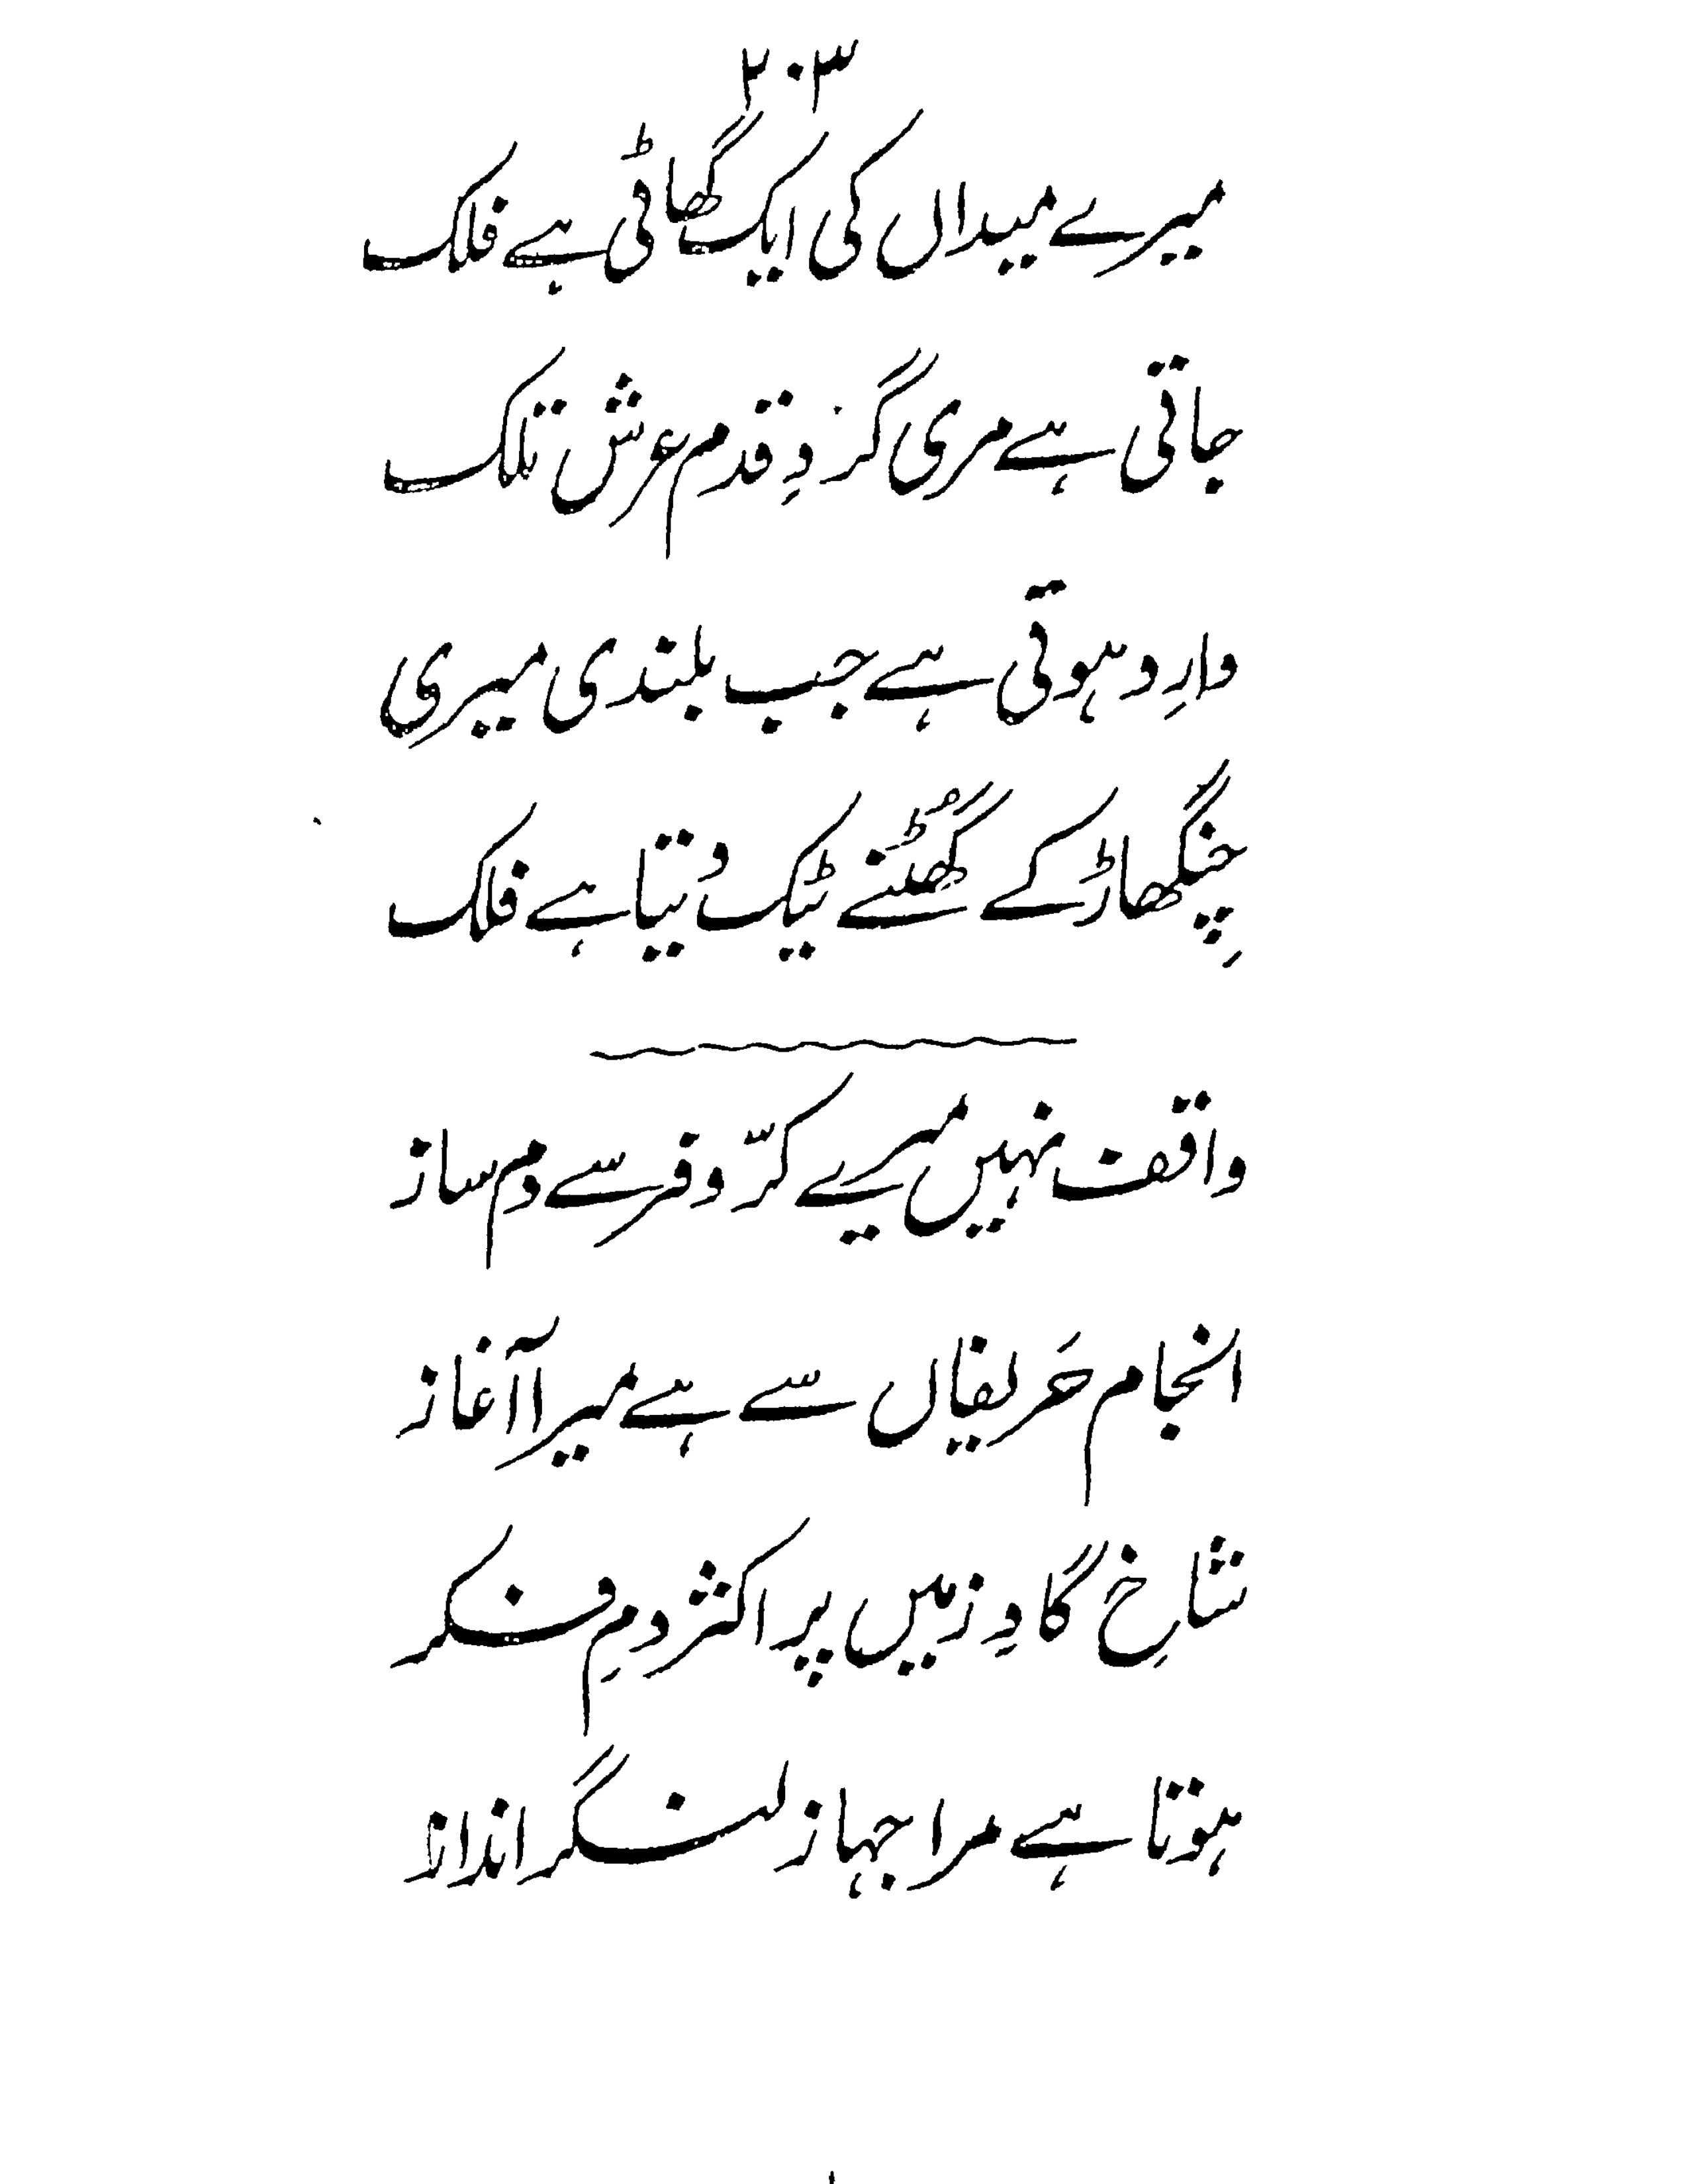 ۲۰۳
میرے میداں کی ایک گھاٹی ہے فلک
جاتی ہے مری گردِ قدم عرش تلک
وارِد ہوتی ہے جب بلندی میری
چِنگھاڑ کے گھُٹنے ٹیک دُیتا ہے فلک
واقف نہیں میرے کرّ و فر سے دم ساز
انجام حَریفاں سے ہے میرا آغاز
شاخِ گاوِ زمیں پر اکثر دمِ فکر
ہوتا ہے مرا جہاز لنگر انداز